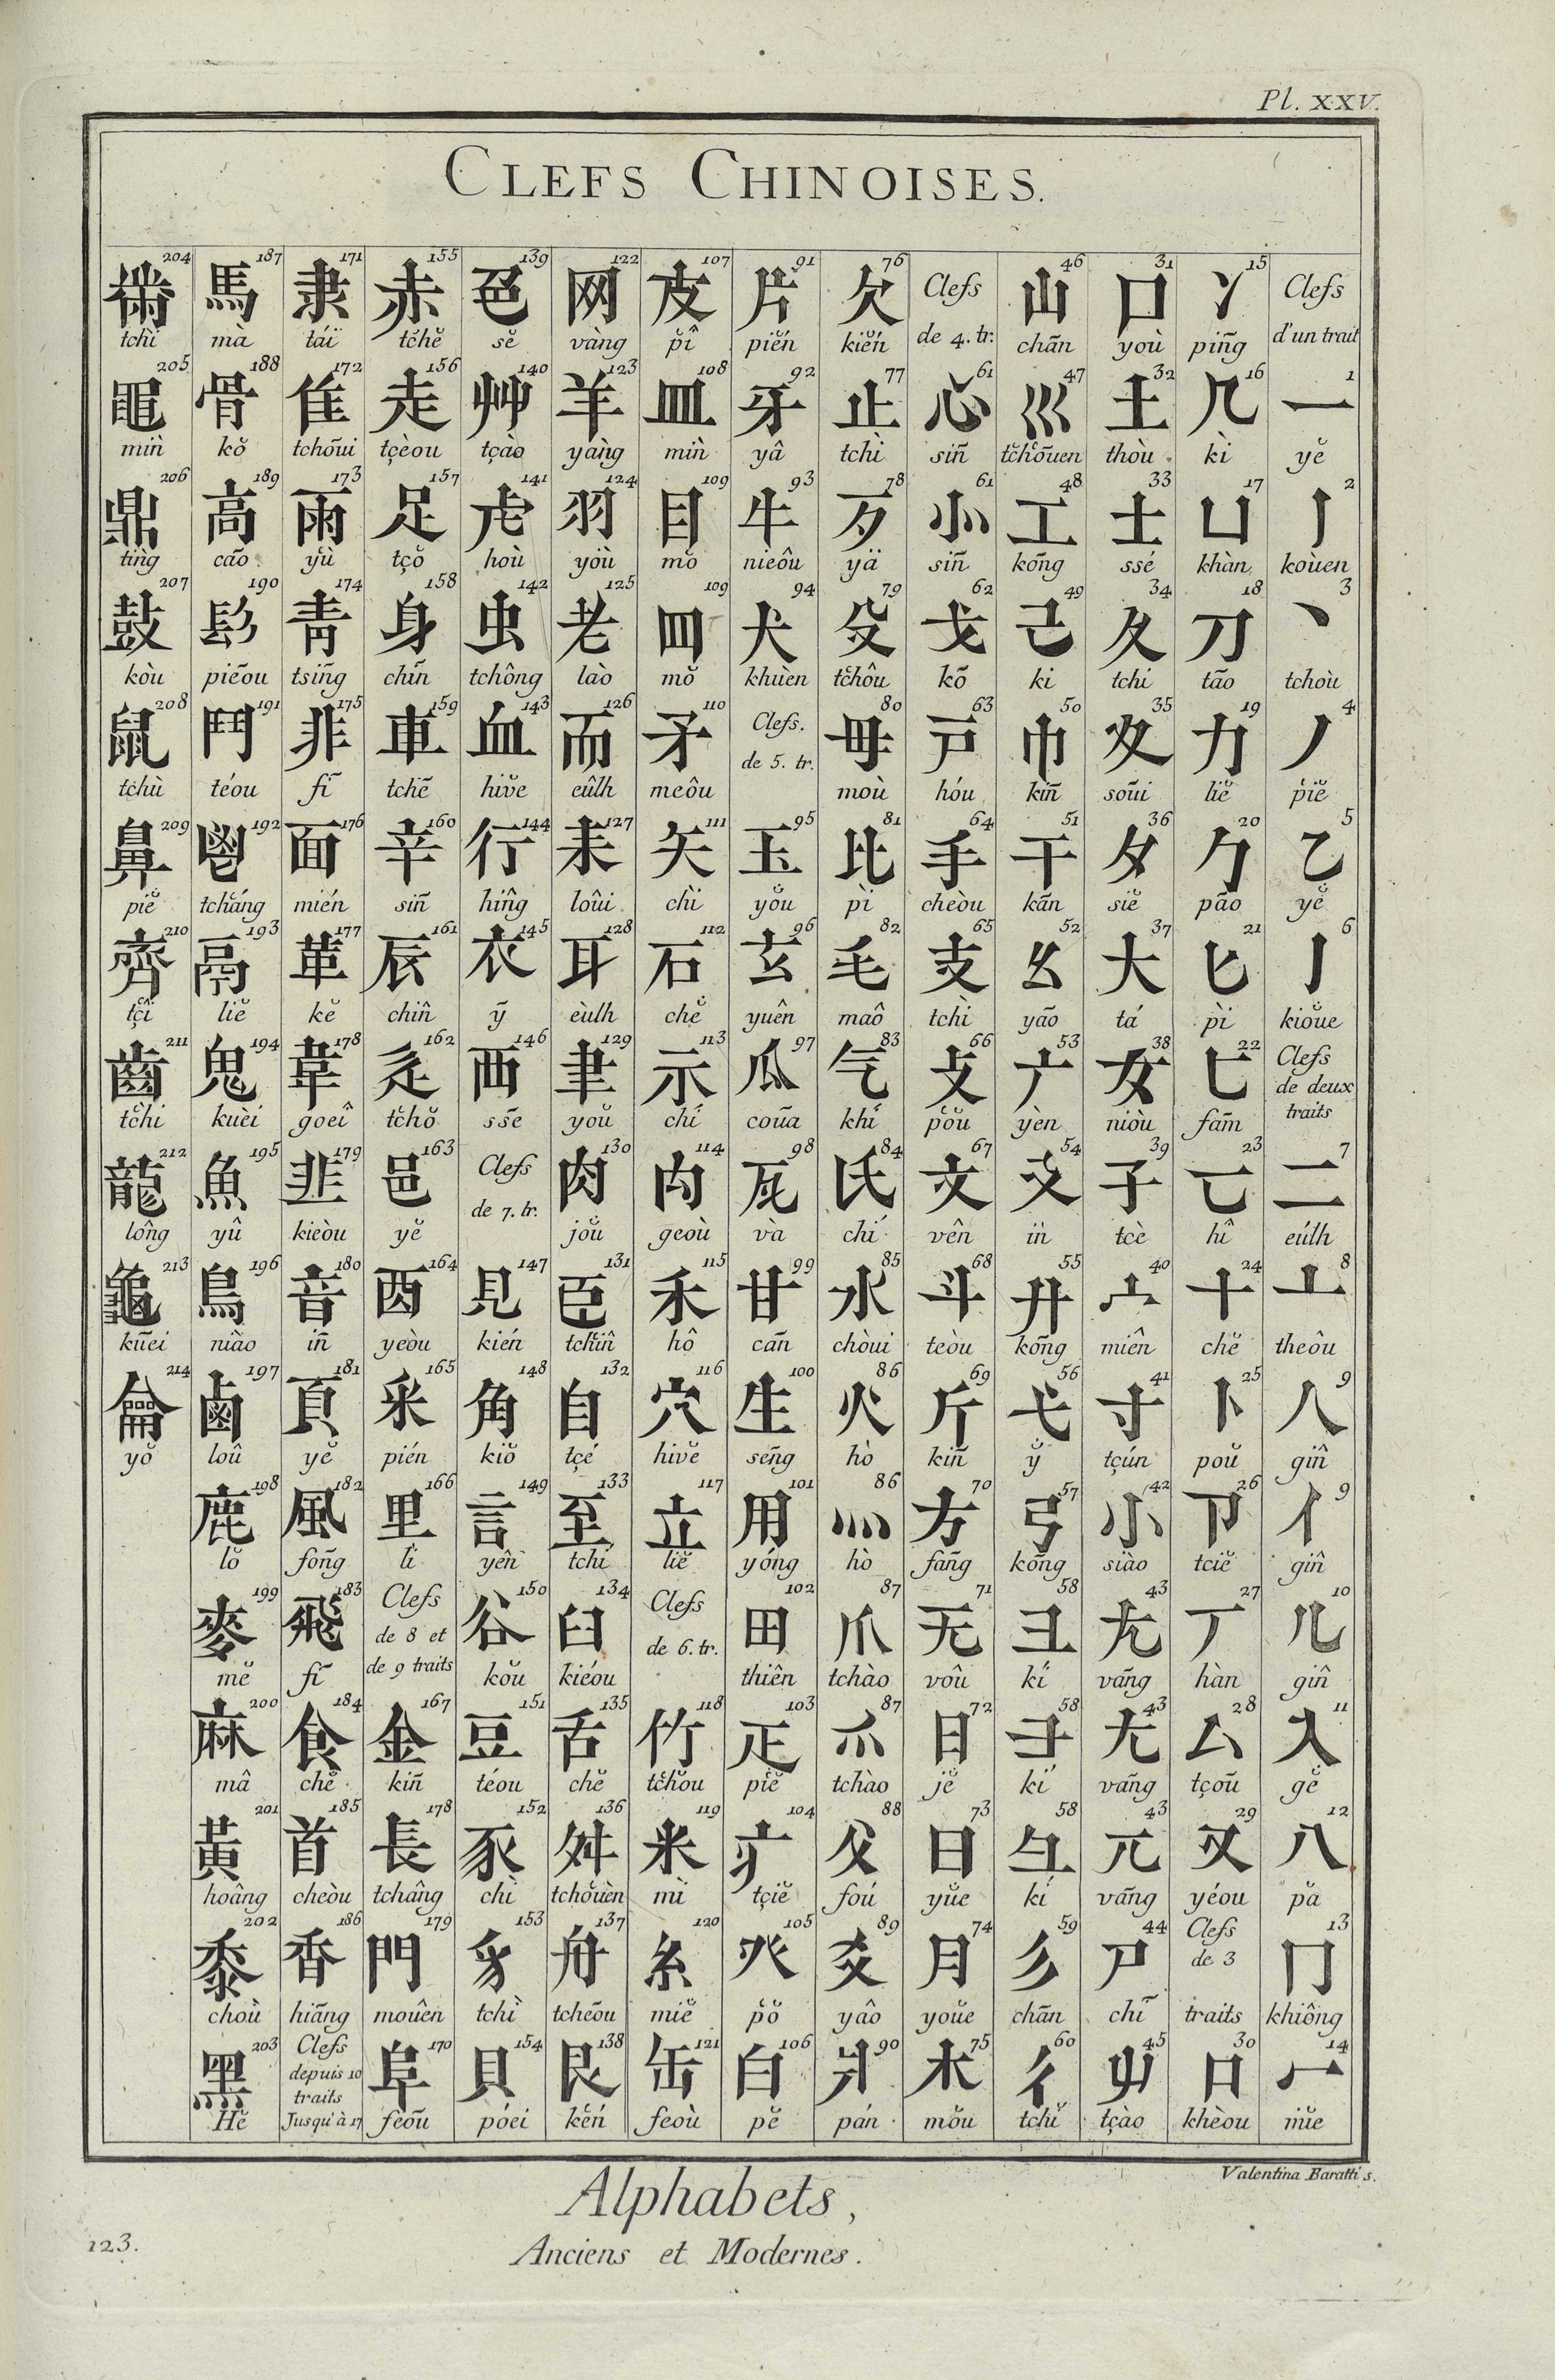 Pl. XXV.
CLEFS CHINOISES.
Clefs
d'un trait
1 一 yĕ
2 亅 koùen
3 丶 tchoù
4 丿 piĕ
5 乙 yĕ
6 亅 kioŭe
Clefs
de deux
traits
7 二 eúlh
8 亠 theôu
9 人 gin̂
9 亻 gin̂
10 儿 gin̂
11 入 gĕ
12 八 pă
13 冂 khiông
14 冖 miĕ
15 冫 pin̄g
16 几 kì
17 凵 khàn
18 刀 tāo
19 力 liĕ
20 勹 pāo
21 匕 pì
22 匚 fam̄
23 亡 hî
24 十 chĕ
25 卜 poŭ
26 卩 tciĕ
27 厂 hàn
28 厶 tçoū
29 又 yéou
Clefs
de 3
traits
30 口 khèou
31 口 yoù
32 土 thòu
33 士 ssé
34 夂 tchi
35 夊 soūi
36 夕 siĕ
37 大 tá
38 女 niòu
39 子 tcè
40 宀 miên
41 寸 tçún
42 小 siào
43 尢 vañg
43 尢 vañg
43 兀 vañg
44 尸 chī
45 屮 tçào
46 山 chān
47 巛 tchoūen
48 工 kōng
49 己 ki
50 巾 kin̄
51 干 kān
52 幺 yāo
53 广 yèn
54 廴 in
55 廾 kōng
56 弋 y̆
57 弓 kōng
58 彐 kí
58 彐 kí
58 彑 kí
59 彡 chān
60 彳 tchĭ
Clefs
de 4. tr.
61 心 sin̄
61 小 sin̄
62 戈 kō
63 戸 hóu
64 手 chèou
65 支 tchì
66 攴 pŏu
67 文 vên
68 斗 teòu
69 斤 kin̄
70 方 fañg
71 无 voû
72 日 jĕ
73 曰 yŭe
74 月 youĕ
75 木 mŏu
76 欠 kién
77 止 tchì
78 歹 yä
79 殳 tchôu
80 毋 moù
81 比 pì
82 毛 maô
83 气 khí
84 氏 chí
85 水 chòui
86 火 hò
86 灬 hò
87 爪 tchào
87 爫 tchào
88 父 foú
89 爻 yâo
90 爿 pán
91 片 pién
92 牙 yâ
93 牛 nieôu
94 犬 khùen
Clefs.
de 5. tr.
95 玉 yŏu
96 玄 yuên
97 瓜 coūa
98 瓦 và
99 甘 cañ
100 生 señg
101 用 yóng
102 田 thiên
103 疋 piĕ
104 疒 tçiĕ
105 癶 pŏ
106 白 pĕ
107 皮 pî
108 皿 mìn
109 目 mŏ
109 罒 mŏ
110 矛 meôu
111 矢 chì
112 石 chĕ
113 示 chí
114 禸 geoù
115 禾 hô
116 穴 hivĕ
117 立 liĕ
Clefs
de 6. tr.
118 竹 tchŏu
119 米 mì
120 糸 miĕ
121 缶 feoù
122 网 vàng
123 羊 yàng
124 羽 yòù
125 老 lào
126 而 eûlh
127 耒 loûi
128 耳 eùlh
129 聿 yoŭ
130 肉 joŭ
131 臣 tchin̂
132 自 tçé
133 至 tchí
134 臼 kiéou
135 舌 chĕ
136 舛 tchoùèn
137 舟 tchēou
138 艮 kén
139 色 sĕ
140 艸 tçào
141 虍 hoù
142 虫 tchông
143 血 hivĕ
144 行 hin̂g
145 衣 ȳ
146 西 ssē
Clefs
de 7. tr.
147 見 kién
148 角 kiŏ
149 言 yên
150 谷 koŭ
151 豆 téou
152 豕 chì
153 豸 tchì
154 貝 póei
155 赤 tchĕ
156 走 tçèou
157 足 tçŏ
158 身 chin̄
159 車 tchē
160 辛 sin̄
161 辰 chin̂
162 辵 tchŏ
163 邑 yĕ
164 酉 yeòu
165 釆 pién
166 里 lì
Clefs
de 8 et
de 9 traits
167 金 kin̄
178 長 tchâng
179 門 mouên
170 阜 feōu
171 隶 táï
172 隹 tchoūi
173 雨 yù
174 靑 tsiñg
175 非 fī
176 面 mién
177 革 kĕ
178 韋 goeî
179 韭 kieòu
180 音 in̄
181 頁 yĕ
182 風 foñg
183 飛 fī
184 食 chĕ
185 首 cheòu
186 香 hiāng
Clefs
depuis 10
traits
Jusqu'à 17
187 馬 mà
188 骨 kŏ
189 高 cāo
190 髟 piēou
191 鬥 téou
192 鬯 tcháng
193 鬲 liĕ
194 鬼 kuèi
195 魚 yû
196 鳥 niào
197 鹵 loû
198 鹿 lŏ
199 麥 mĕ
200 麻 mâ
201 黃 hoâng
202 黍 choù
203 黑 Hĕ
204 黹 tchì
205 黽 mìn
206 鼎 tìng
207 鼓 kòu
208 鼠 tchù
209 鼻 piĕ
210 齊 tçî
211 齒 tchi
212 龍 lông
213 龜 kūei
214 龠 yŏ
Valentina Baratti s.
Alphabets,
Anciens et Modernes.
123.